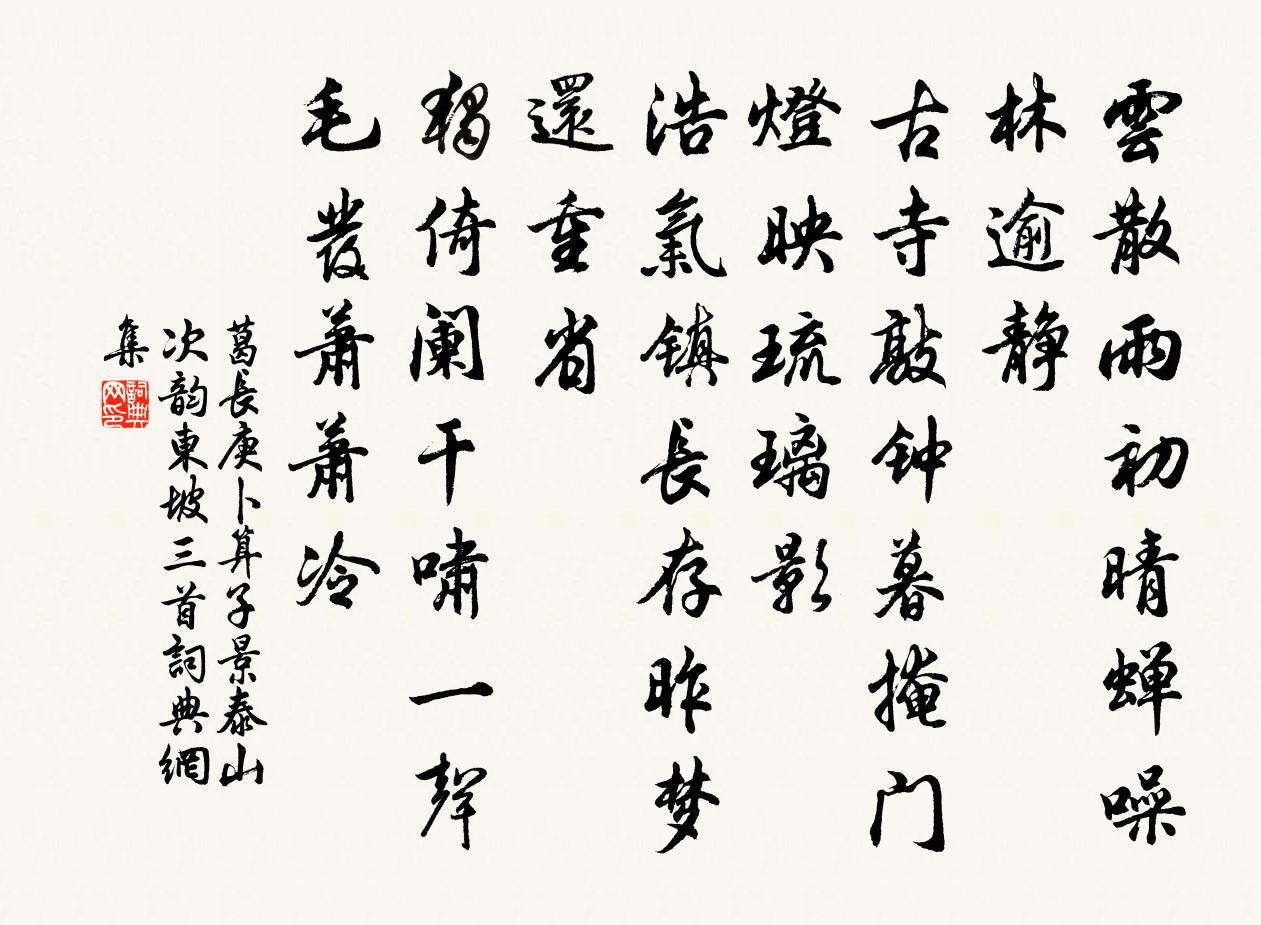 雲散雨初晴蝉噪
林逾静
古寺敲钟暮掩门
燈映琉璃影
浩氣镇長存昨梦
還重省
獨倚阑干嘯一聲
毛發蕭蕭冷
葛長庚卜算子景泰山
次韵東坡三首詞典網
集
詞典網印